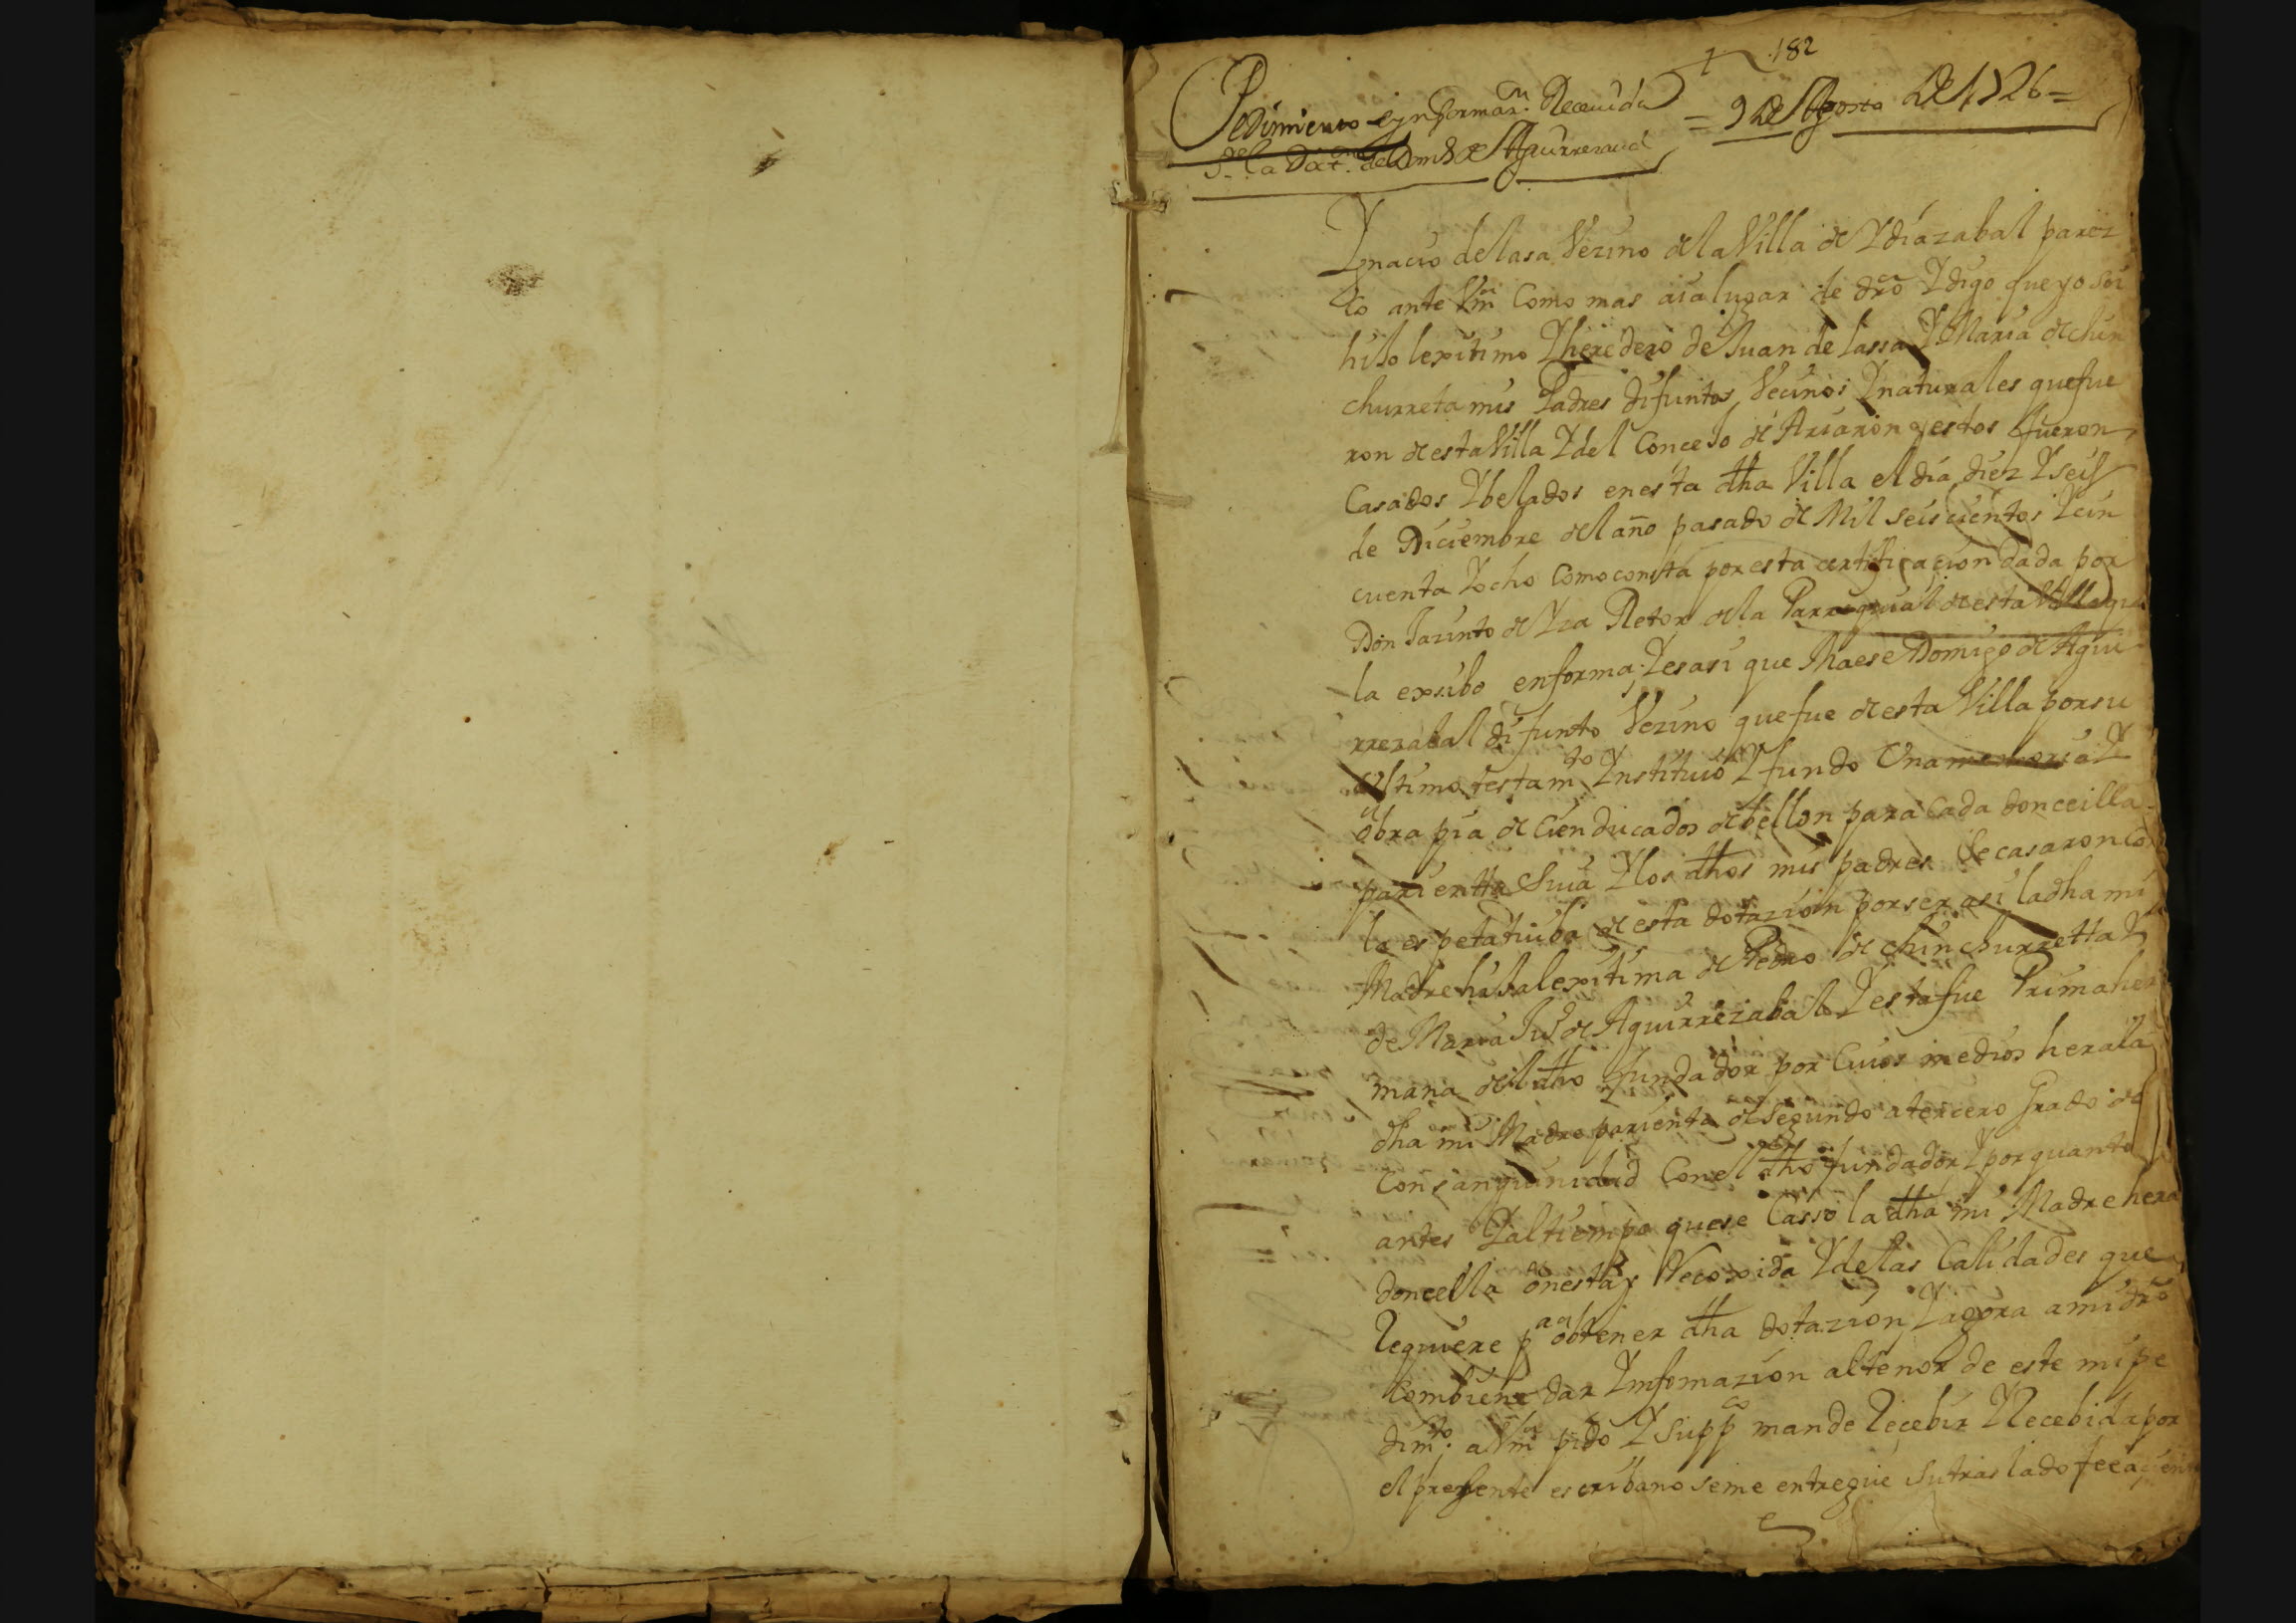 182
Pedimiento e ynformaon. Receuida = 9 de Agosto de 1726 =
de la Dot.on de Dom.o de Aguirrezaual
Ygnacio de lasa Vezino de la Villa de Ydiazabal parez
co ante Vm Como mas aia lugar de dro Y digo que yo soi
hiJo lexitimo Y heredero de Juan de lassa Y Maria de chin
churreta mis Padres difuntos, Vecinos Y naturales que fue
ron de esta Villa Y del ConceJo de Ariaron y estos fueron
Casados Y belados en esta dha Villa el dia diez Y seis
de Diciembre del año pasado de Mil seiscientos Y cin
cuenta Y ocho Como consta por esta certificacion dada por
Don Jazinto de Yza Retor de la Parroquial de esta Villa que
la exsibo en forma; Y es asi que Maese Domigo de Agui
rrezabal difunto Vezino que fue de esta Villa por su
Vltimo testamto Ynstituió Y fundo Vna memoria Y
obra pia de Cien ducados de bellon para Cada donceilla
parientta Suia Y los dhos mis padres Se casaron Con
la espetatiuba de esta dotazion por ser asi la dha mi
Madre hiJa lexitima de Pedro de chinchurretta Y
de Maria Jus de Aguirrezabal Y esta fue Prima her
mana del dho fundador por Cuios medios hera la
dha mi Madre parienta de Segundo a tercero Grado de
Consanguinidad Con el dho fundador Y por quanto
antes Y al tiempo que se Cassó la dha mi Madre hera
doncella onesta y Recoxida Y de las Calidades que
Requiere pa obtener dha dotazion Y agora a mi dro
Combiene dar Ynfomazion al tenor de este mi pe
dimto. a Vm pido Y suppco mande Recebir Y Recebida por
el pressente escribano se me entregue su traslado feeaciente